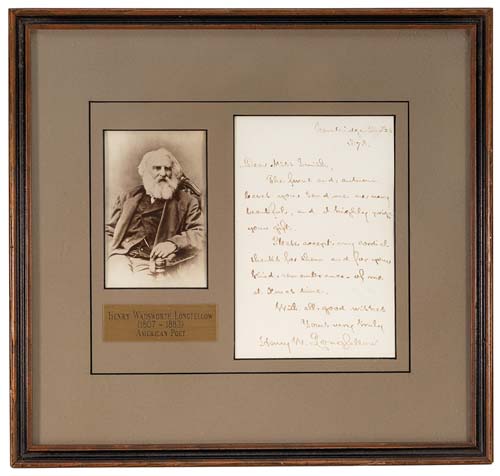 HENRY WADSWORTH LONGFELLOW
(1807 – 1882)
AMERICAN POET
Cambridge Dec
187
Dear Miss Smith,
The fruit and autumn
leaves you send me are very
beautiful, and I highly prize
your gift.
Please accept my cordial
thanks for them and for your
kind remembrance of me
at Xmas time.
With all good wishes
Yours very truly
Henry W. Longfellow